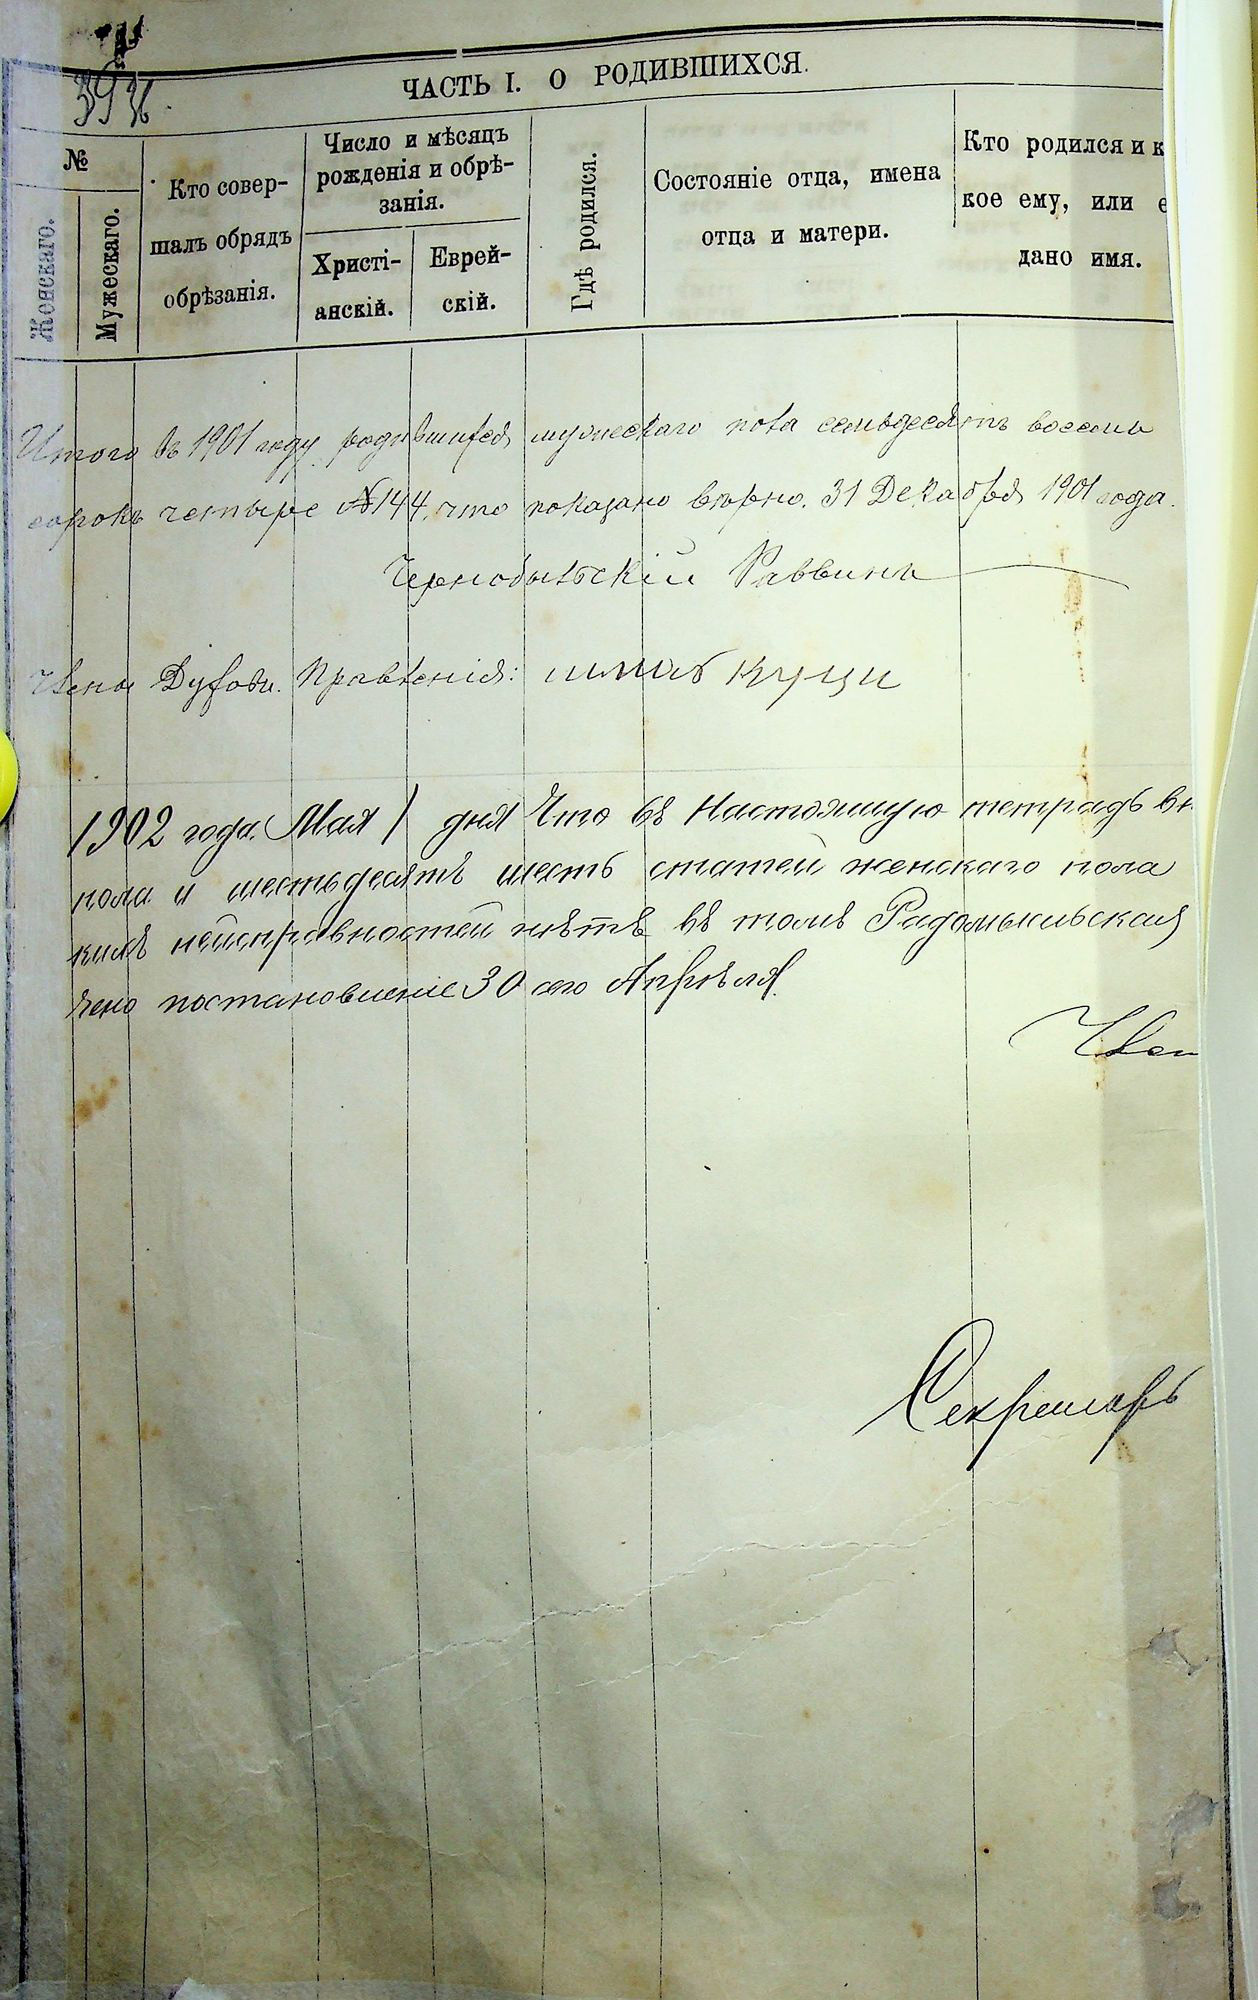 ЧАСТЬ I. О РОДИВШИХСЯ.
№
Женскаго.
Мужескаго.
Кто совер-
шалъ обрядъ
обрѣзанія.
Число и мѣсяцъ
рожденія и обрѣ-
занія.
Христі-
анскій.
Еврей-
скій.
Гдѣ родился.
Состояніе отца, имена
отца и матери.
Кто родился и к
кое ему, или е
дано имя.
Итого въ 1901 году родившихся мужескаго пола семьдесятъ восемь
сорокъ четыре №144, что показано вѣрно. 31 Декабря 1901 года.
Чернобыльскій Раввинъ
Члены Духовн. Правленія:
1902 года Мая 1 дня Что въ настоящую тетрадь вн
пола и шестьдесятъ шесть статей женскаго пола
кихъ неисправностей нѣтъ въ томъ Радомысльская
чено постановленіе 30 сего Апрѣля.
Член
Секретарь